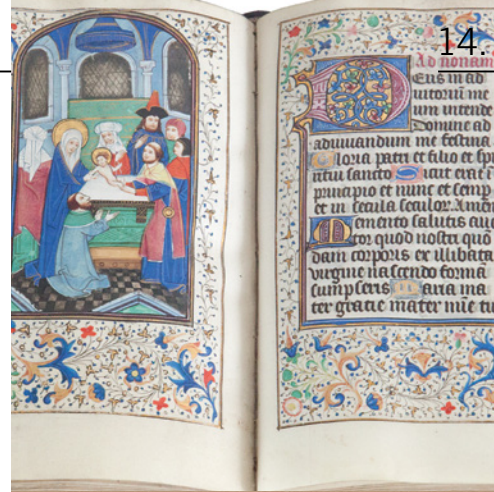 14.
Ad nonam
Eus in ad
iutoriū me
um intende
Domine ad
adiuuandum me festina
Gloria patri et filio et spi
ritui sancto Sicut erat i
principio et nunc et semp
et in secula seculor. Amen
Memento salutis auc
tor quod nostri quō
dam corporis ex illibata
uirgine nascendo formā
sumpseris Maria ma
ter gratie mater mīe tu